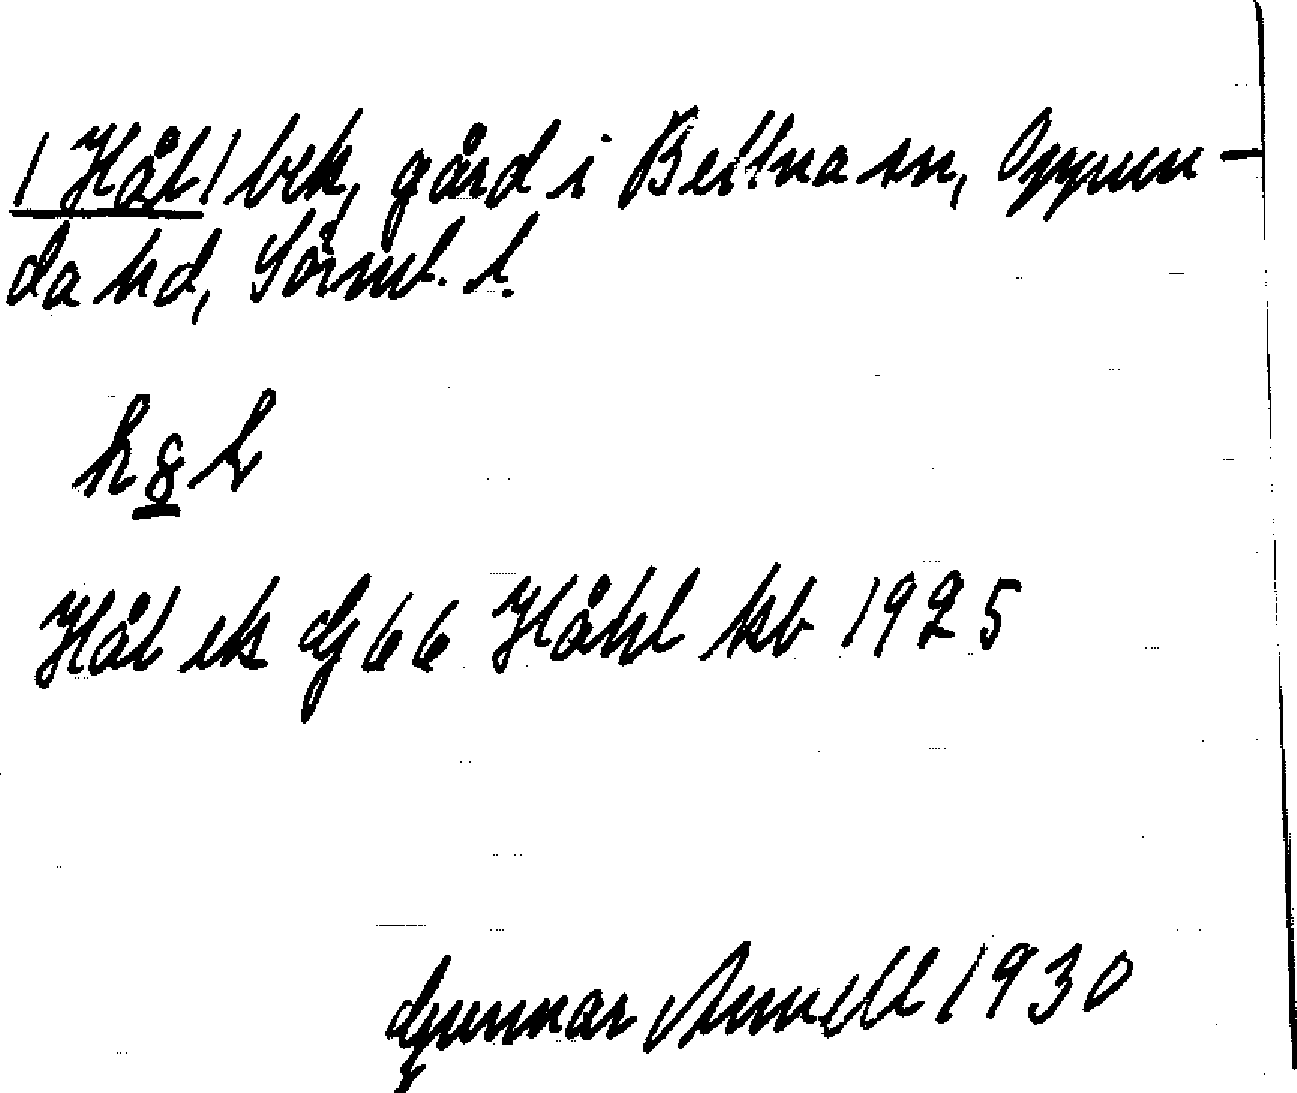 /Hål/ bek, gård i Bettna sn, Oppun-
da hd, Sörml. l.
hg̲l
Hål ek G 66 Håhl kb 1925
Gunnar Arnell 1930